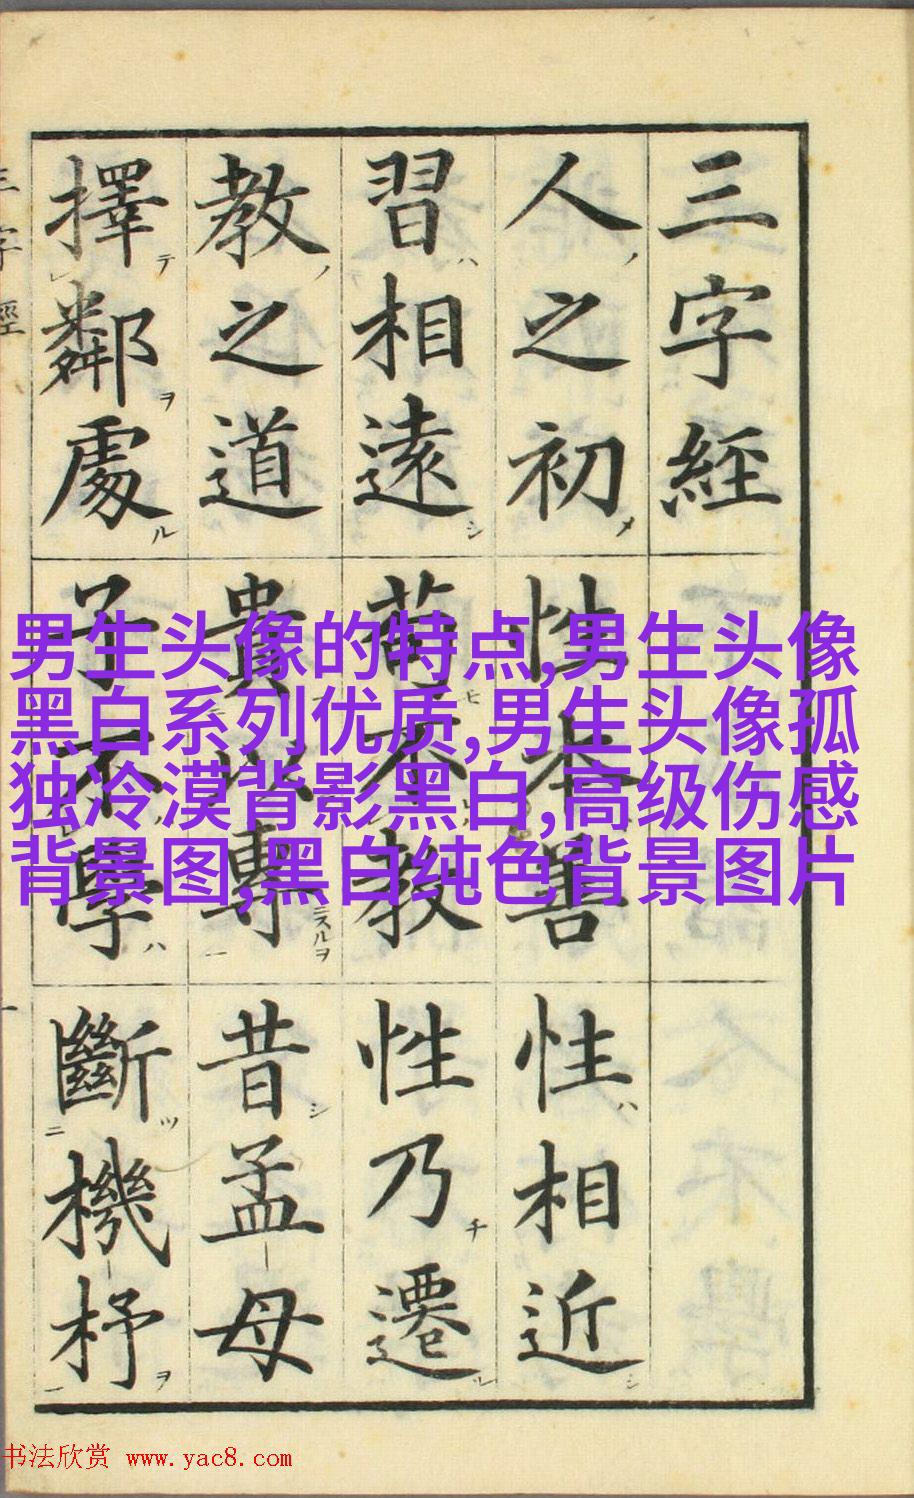 三字經
人之初性本善性相近
習相遠苟不教性乃遷
教之道貴以專昔孟母
擇鄰處子不學斷機杼
三字經 一
男生头像的特点,男生头像
黑白系列优质,男生头像孤
独冷漠背影黑白,高级伤感
背景图,黑白纯色背景图片
书法欣赏 www.yac8.com